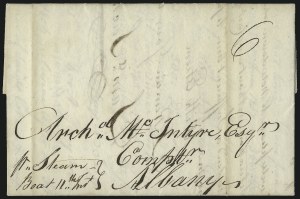 6
Archd. Mc. Intyre, Esqr.
Compr.
Albany
pr. Steam
Boat 11th Inst